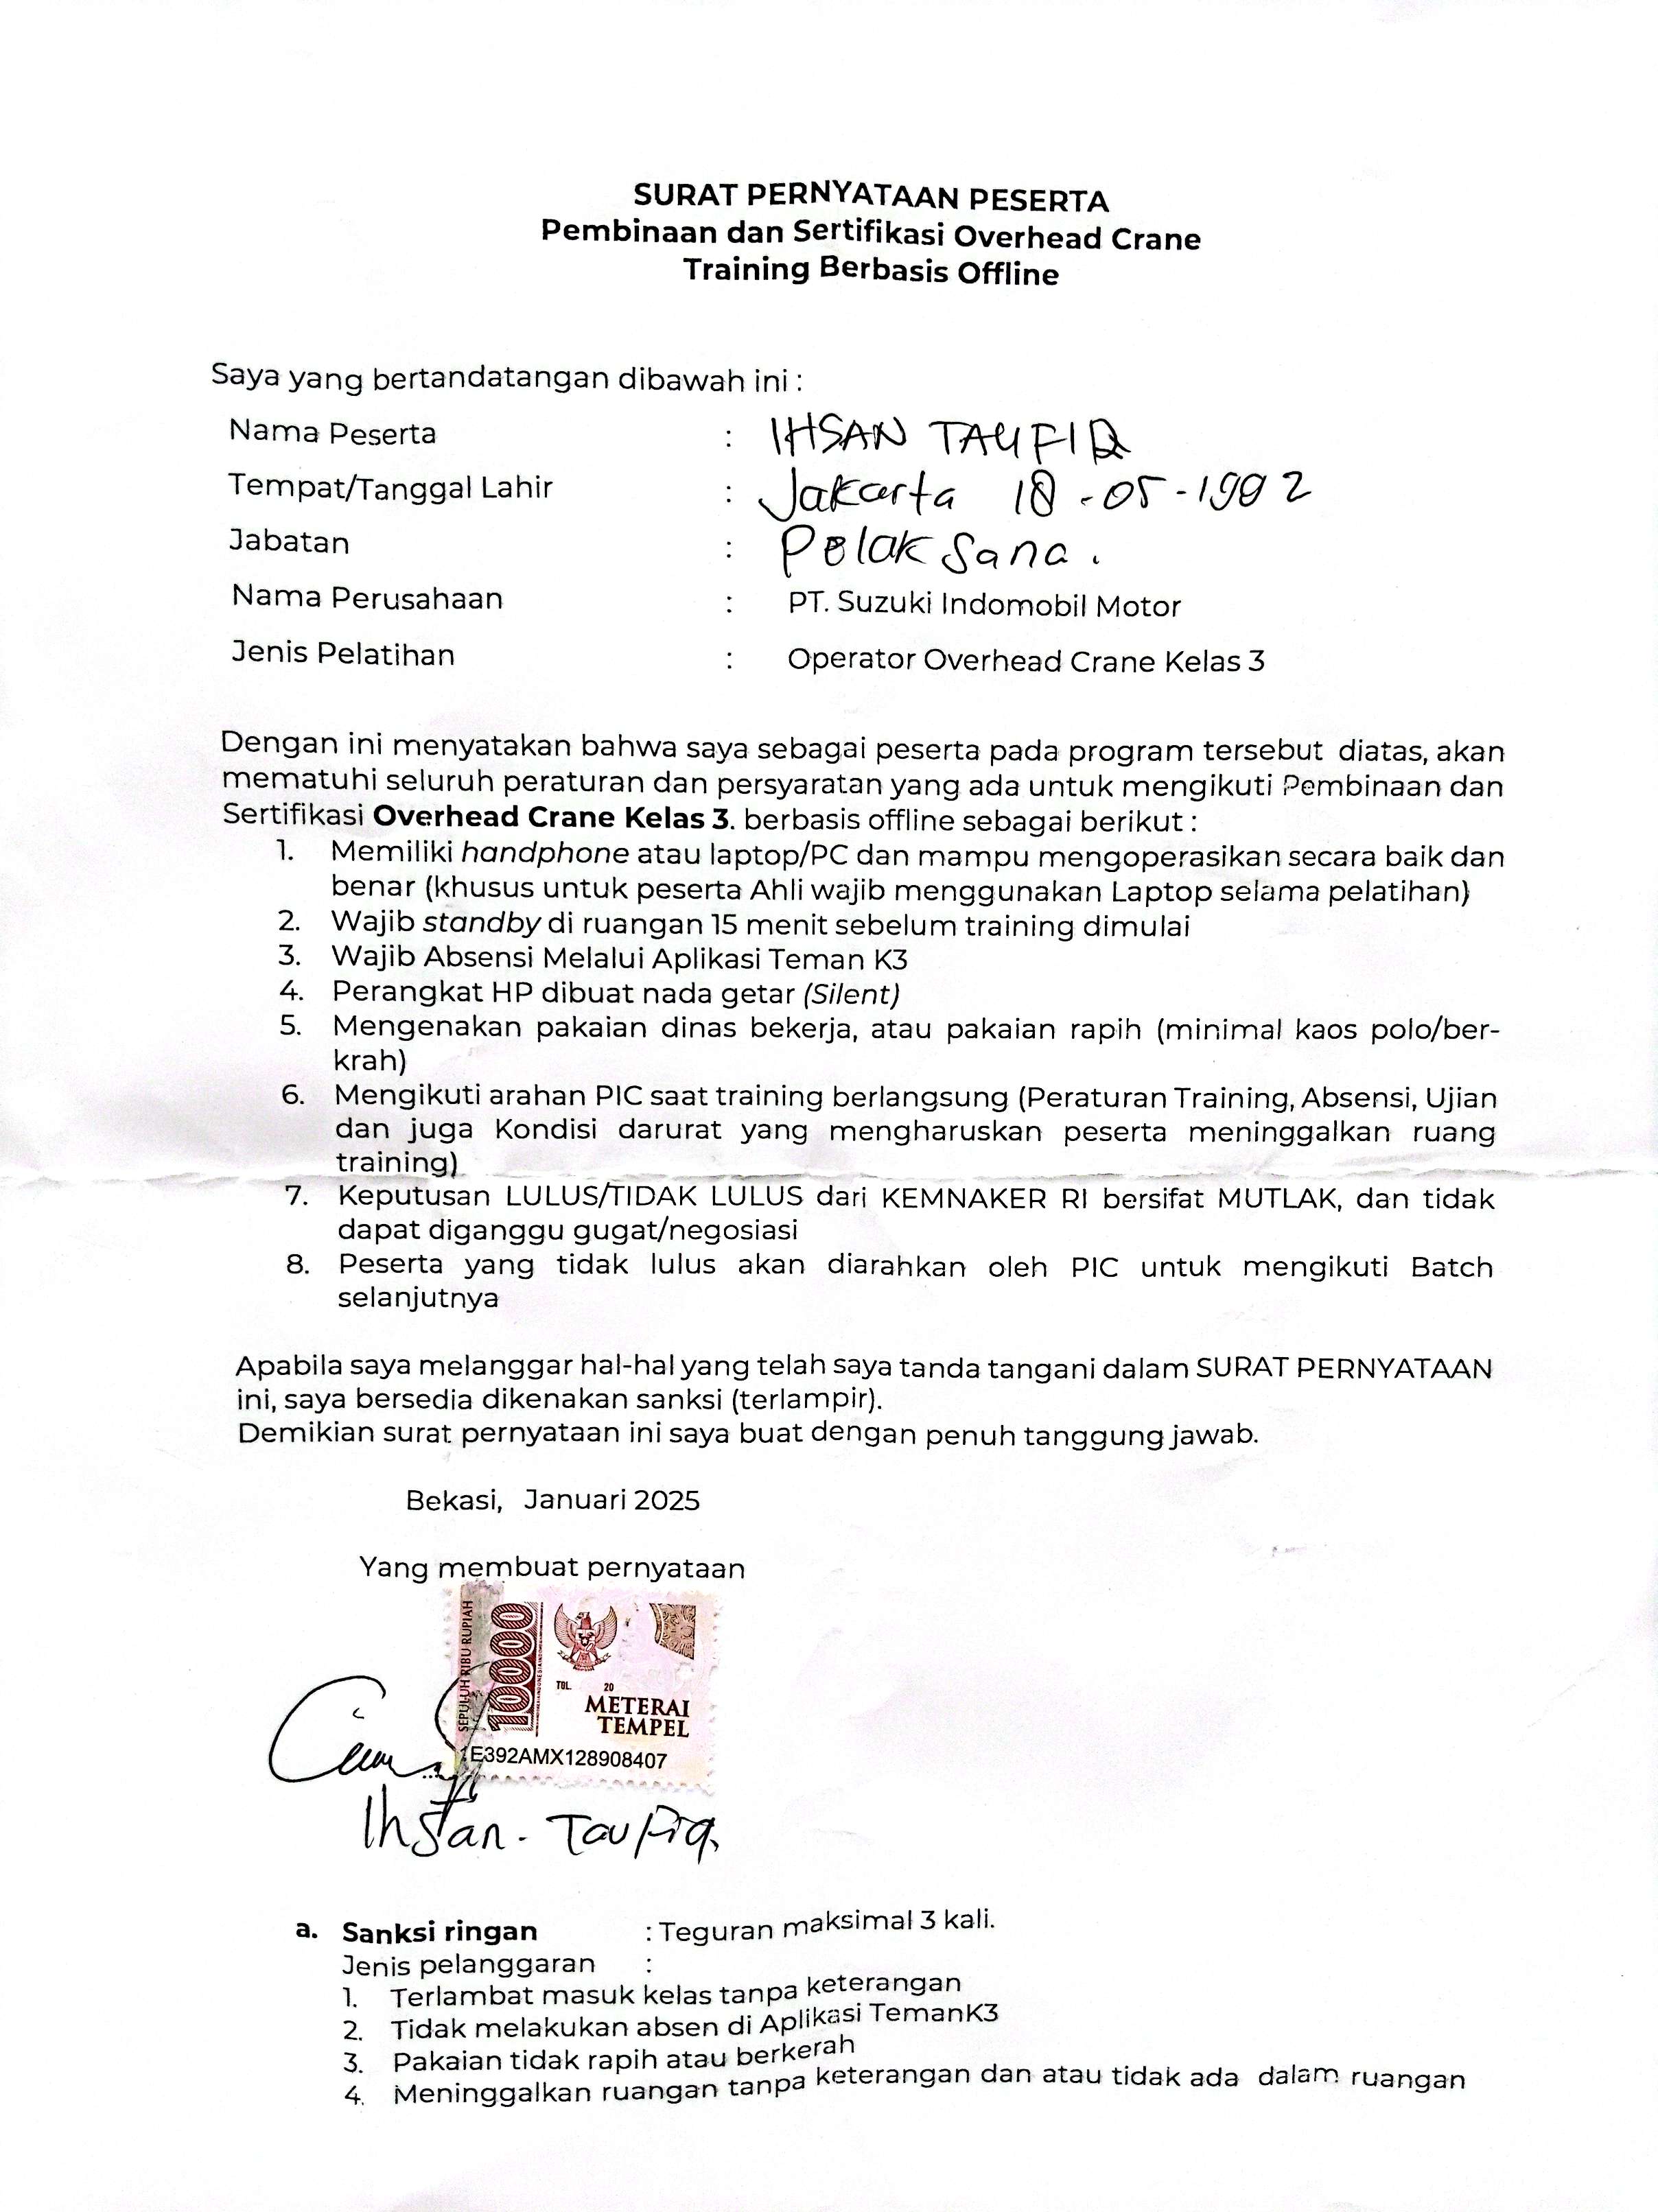 SURAT PERNYATAAN PESERTA
Pembinaan dan Sertifikasi Overhead Crane
Training Berbasis Offline
Saya yang bertandatangan dibawah ini :
Nama Peserta : IHSAN TAUFIQ
Tempat/Tanggal Lahir : Jakarta 18-05-1992
Jabatan : Pelaksana.
Nama Perusahaan : PT. Suzuki Indomobil Motor
Jenis Pelatihan : Operator Overhead Crane Kelas 3
Dengan ini menyatakan bahwa saya sebagai peserta pada program tersebut diatas, akan
mematuhi seluruh peraturan dan persyaratan yang ada untuk mengikuti Pembinaan dan
Sertifikasi Overhead Crane Kelas 3. berbasis offline sebagai berikut :
1. Memiliki handphone atau laptop/PC dan mampu mengoperasikan secara baik dan
benar (khusus untuk peserta Ahli wajib menggunakan Laptop selama pelatihan)
2. Wajib standby di ruangan 15 menit sebelum training dimulai
3. Wajib Absensi Melalui Aplikasi Teman K3
4. Perangkat HP dibuat nada getar (Silent)
5. Mengenakan pakaian dinas bekerja, atau pakaian rapih (minimal kaos polo/ber-
krah)
6. Mengikuti arahan PIC saat training berlangsung (Peraturan Training, Absensi, Ujian
dan juga Kondisi darurat yang mengharuskan peserta meninggalkan ruang
training)
7. Keputusan LULUS/TIDAK LULUS dari KEMNAKER RI bersifat MUTLAK, dan tidak
dapat diganggu gugat/negosiasi
8. Peserta yang tidak lulus akan diarahkan oleh PIC untuk mengikuti Batch
selanjutnya
Apabila saya melanggar hal-hal yang telah saya tanda tangani dalam SURAT PERNYATAAN
ini, saya bersedia dikenakan sanksi (terlampir).
Demikian surat pernyataan ini saya buat dengan penuh tanggung jawab.
Bekasi, Januari 2025
Yang membuat pernyataan
SEPULUH RIBU RUPIAH
10000
TGL. 20
METERAI
TEMPEL
1E392AMX128908407
Ihsan. Taufiq.
a. Sanksi ringan : Teguran maksimal 3 kali.
Jenis pelanggaran :
1. Terlambat masuk kelas tanpa keterangan
2. Tidak melakukan absen di Aplikasi TemanK3
3. Pakaian tidak rapih atau berkerah
4. Meninggalkan ruangan tanpa keterangan dan atau tidak ada dalam ruangan